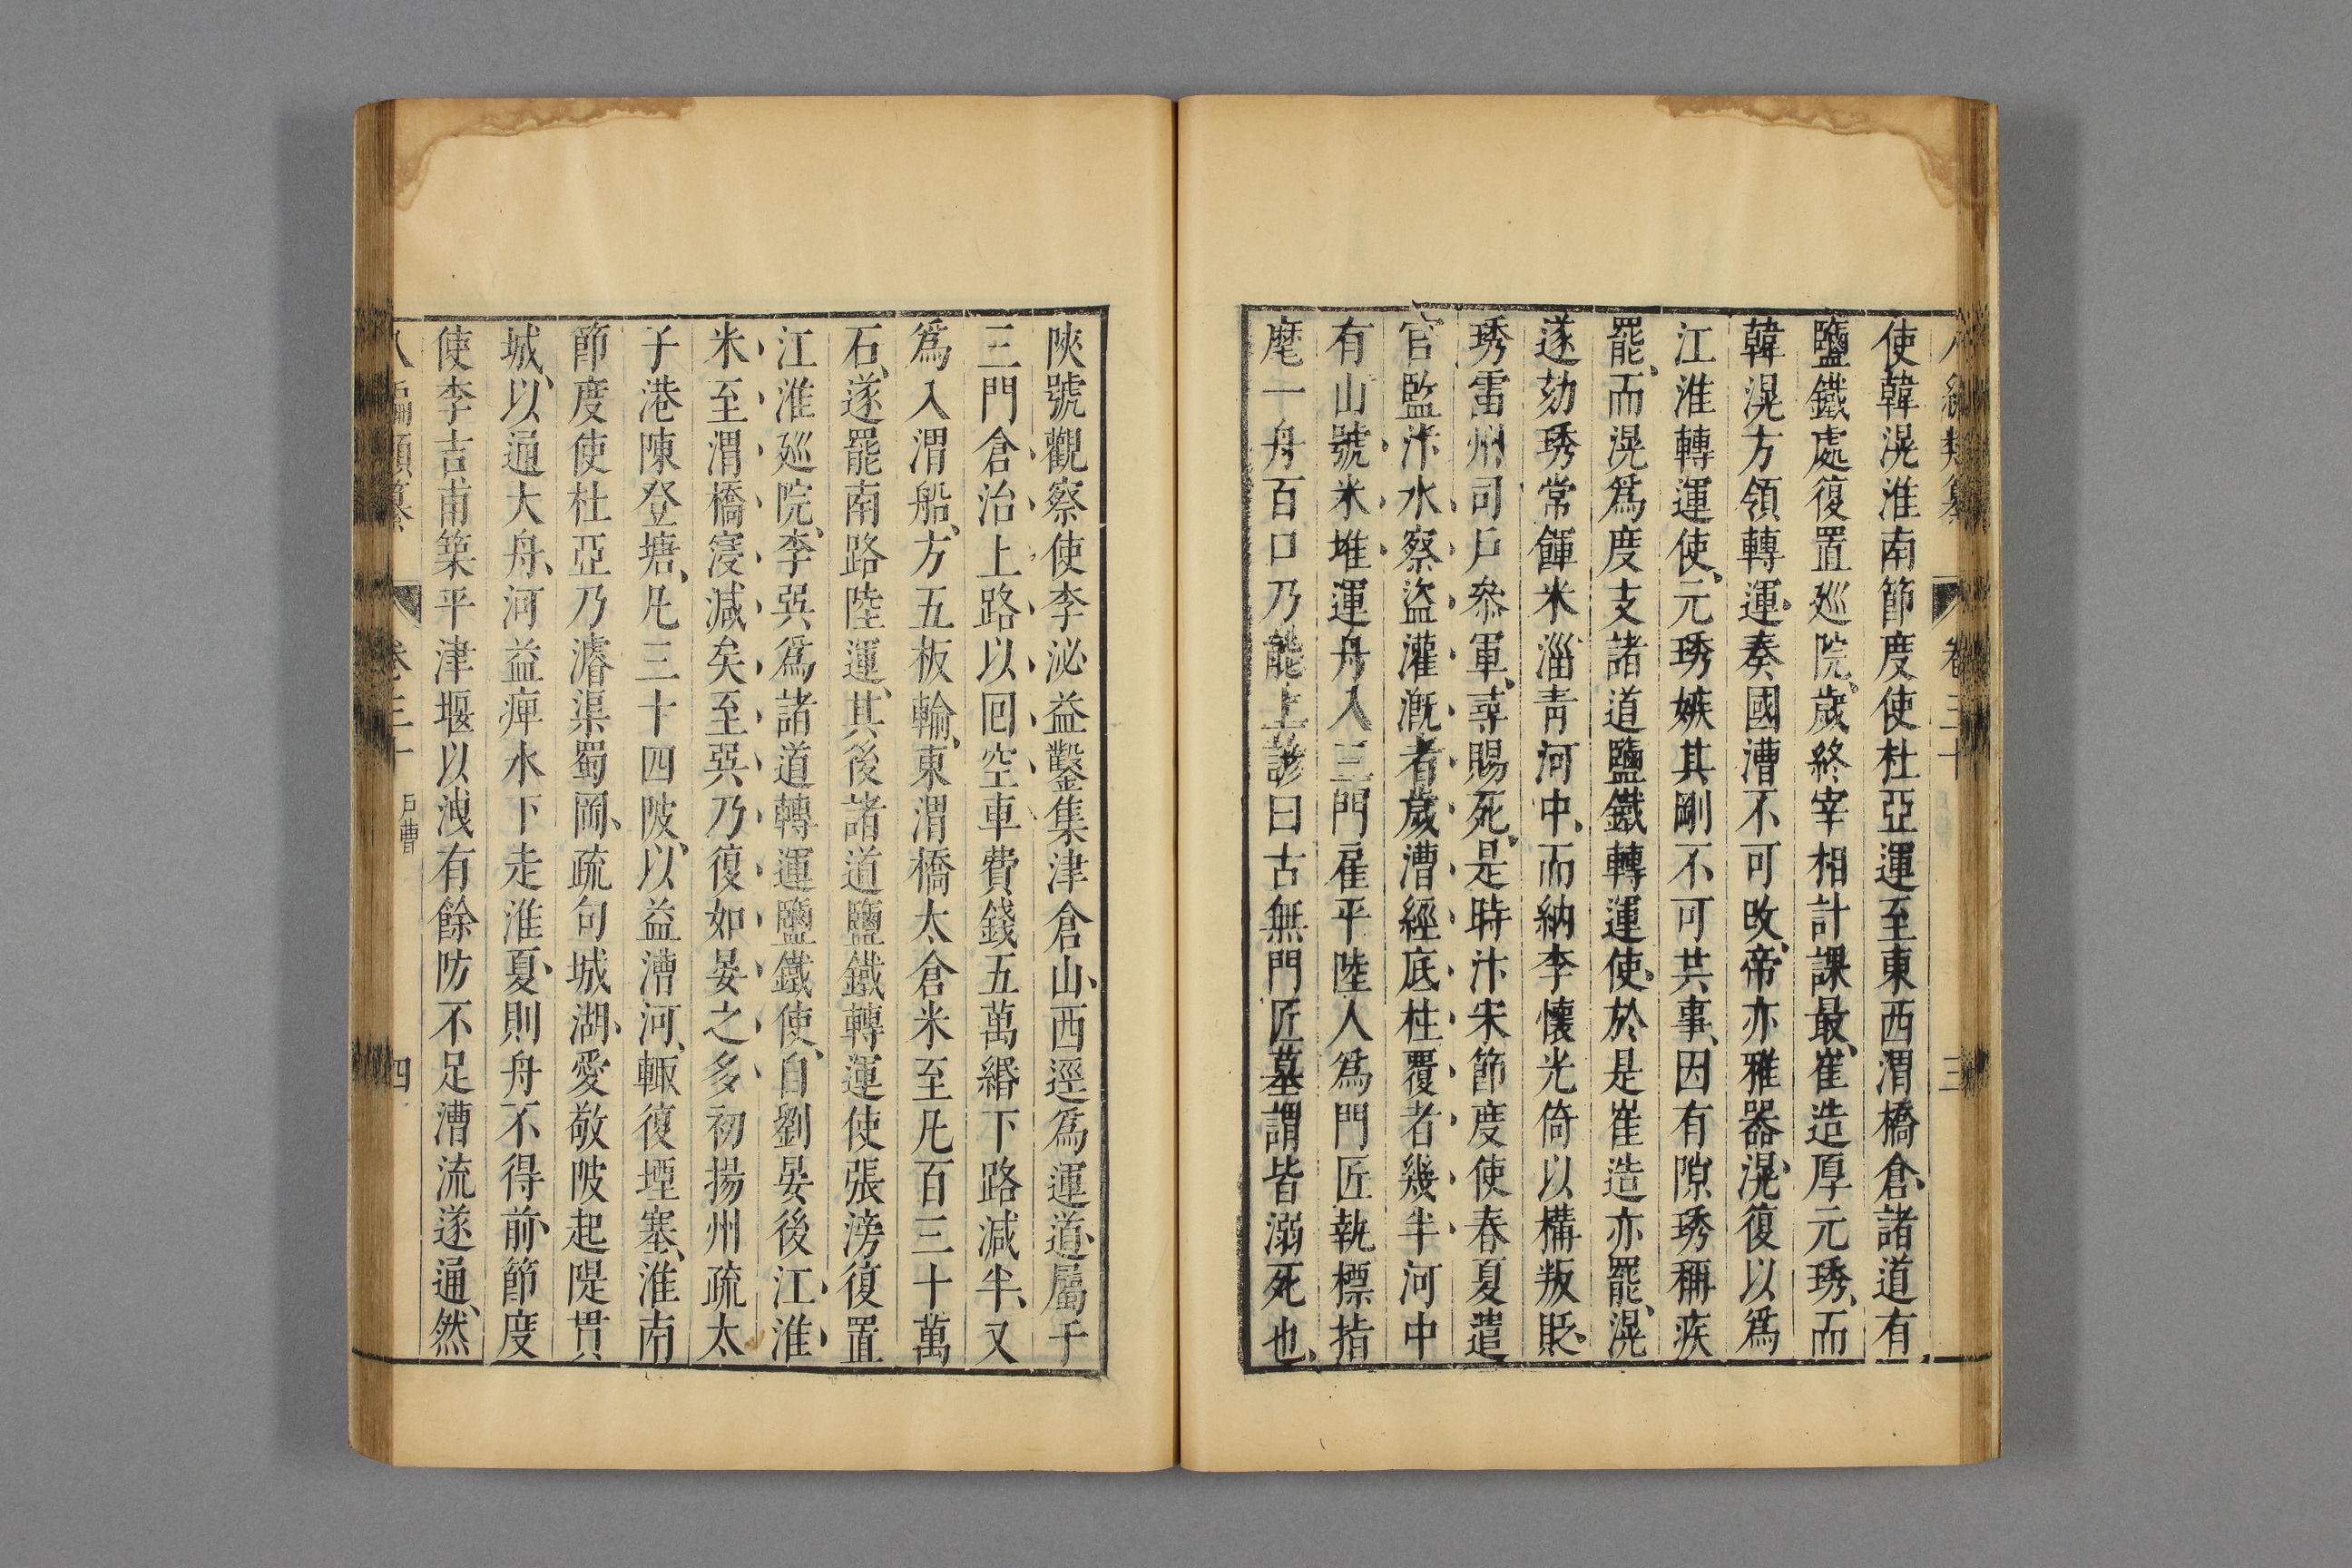 八編類纂 卷三十 三
使韓滉淮南節度使杜亞運至東西渭橋倉諸道有
鹽鐵處復置廵院歲終宰相計課最崔造厚元琇而
韓滉方領轉運奏國漕不可攺帝亦雅器滉復以爲
江淮轉運使元琇嫉其剛不可共事因有隙琇稱疾
罷而滉爲度支諸道鹽鐵轉運使於是崔造亦罷滉
遂劾琇常餫米淄青河中而納李懷光倚以構叛貶
琇雷州司戶叅軍尋賜死是時汴宋節度使春夏遣
官監汴水察盜灌漑者歲漕經底柱覆者幾半河中
有山號米堆運舟入三門雇平陸人爲門匠執標指
麾一舟百日乃能上諺曰古無門匠墓謂皆溺死也
陝虢觀察使李泌益鑿集津倉山西逕爲運道屬于
三門倉治上路以囘空車費錢五萬緡下路減半又
爲入渭船方五板輸東渭橋太倉米至凡百三十萬
石遂罷南路陸運其後諸道鹽鐵轉運使張滂復置
江淮廵院李巽爲諸道轉運鹽鐵使自劉晏後江淮
米至渭橋寖減矣至巽乃復如晏之多初揚州疏太
子港陳登塘凡三十四陂以益漕河輙復堙塞淮南
節度使杜亞乃濬渠蜀岡疏句城湖愛敬陂起隄貫
城以通大舟河益痺水下走淮夏則舟不得前節度
使李吉甫築平津堰以洩有餘防不足漕流遂通然
八編類纂 卷三十 戶曹 四